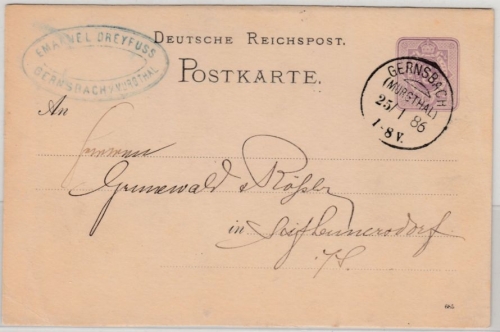 EMANUEL DREYFUSS
GERNSBACH (MURGTHAL)
DEUTSCHE REICHSPOST.
POSTKARTE.
GERNSBACH
(MURGTHAL)
25/1 86
7-8 V.
An
Herren
Grunewald & Rößler
in Seifhennersdorf
i/S.